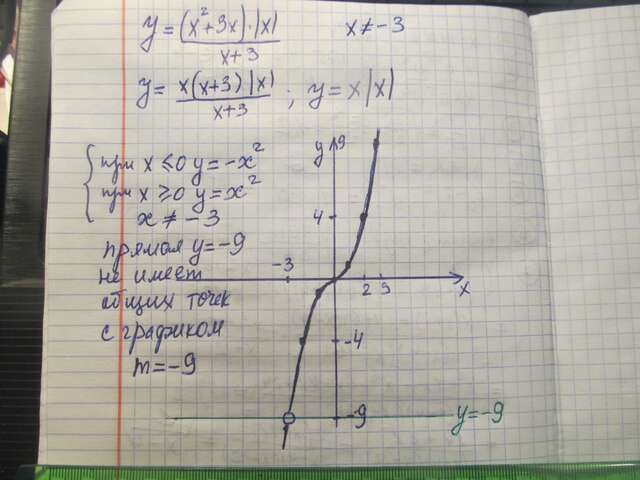 y = (x²+3x)·|x| / x+3    x ≠ -3
y = x(x+3)·|x| / x+3 ; y = x|x|
при x ≤ 0 y = -x²
при x ≥ 0 y = x²
x ≠ -3
прямая y = -9
не имеет
общих точек
с графиком
m = -9
y 9
4
-3
2 3
x
-4
-9
y = -9